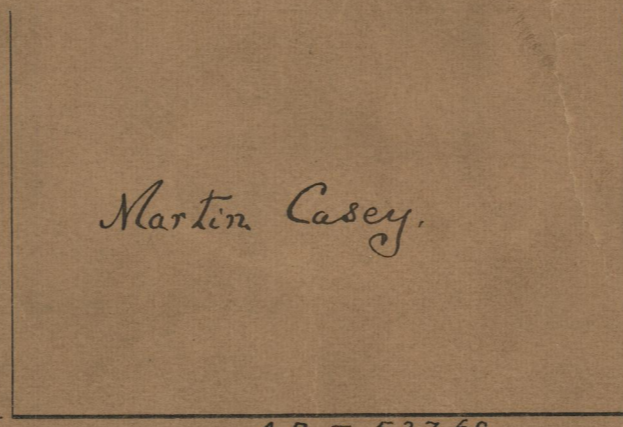 Martin Casey.